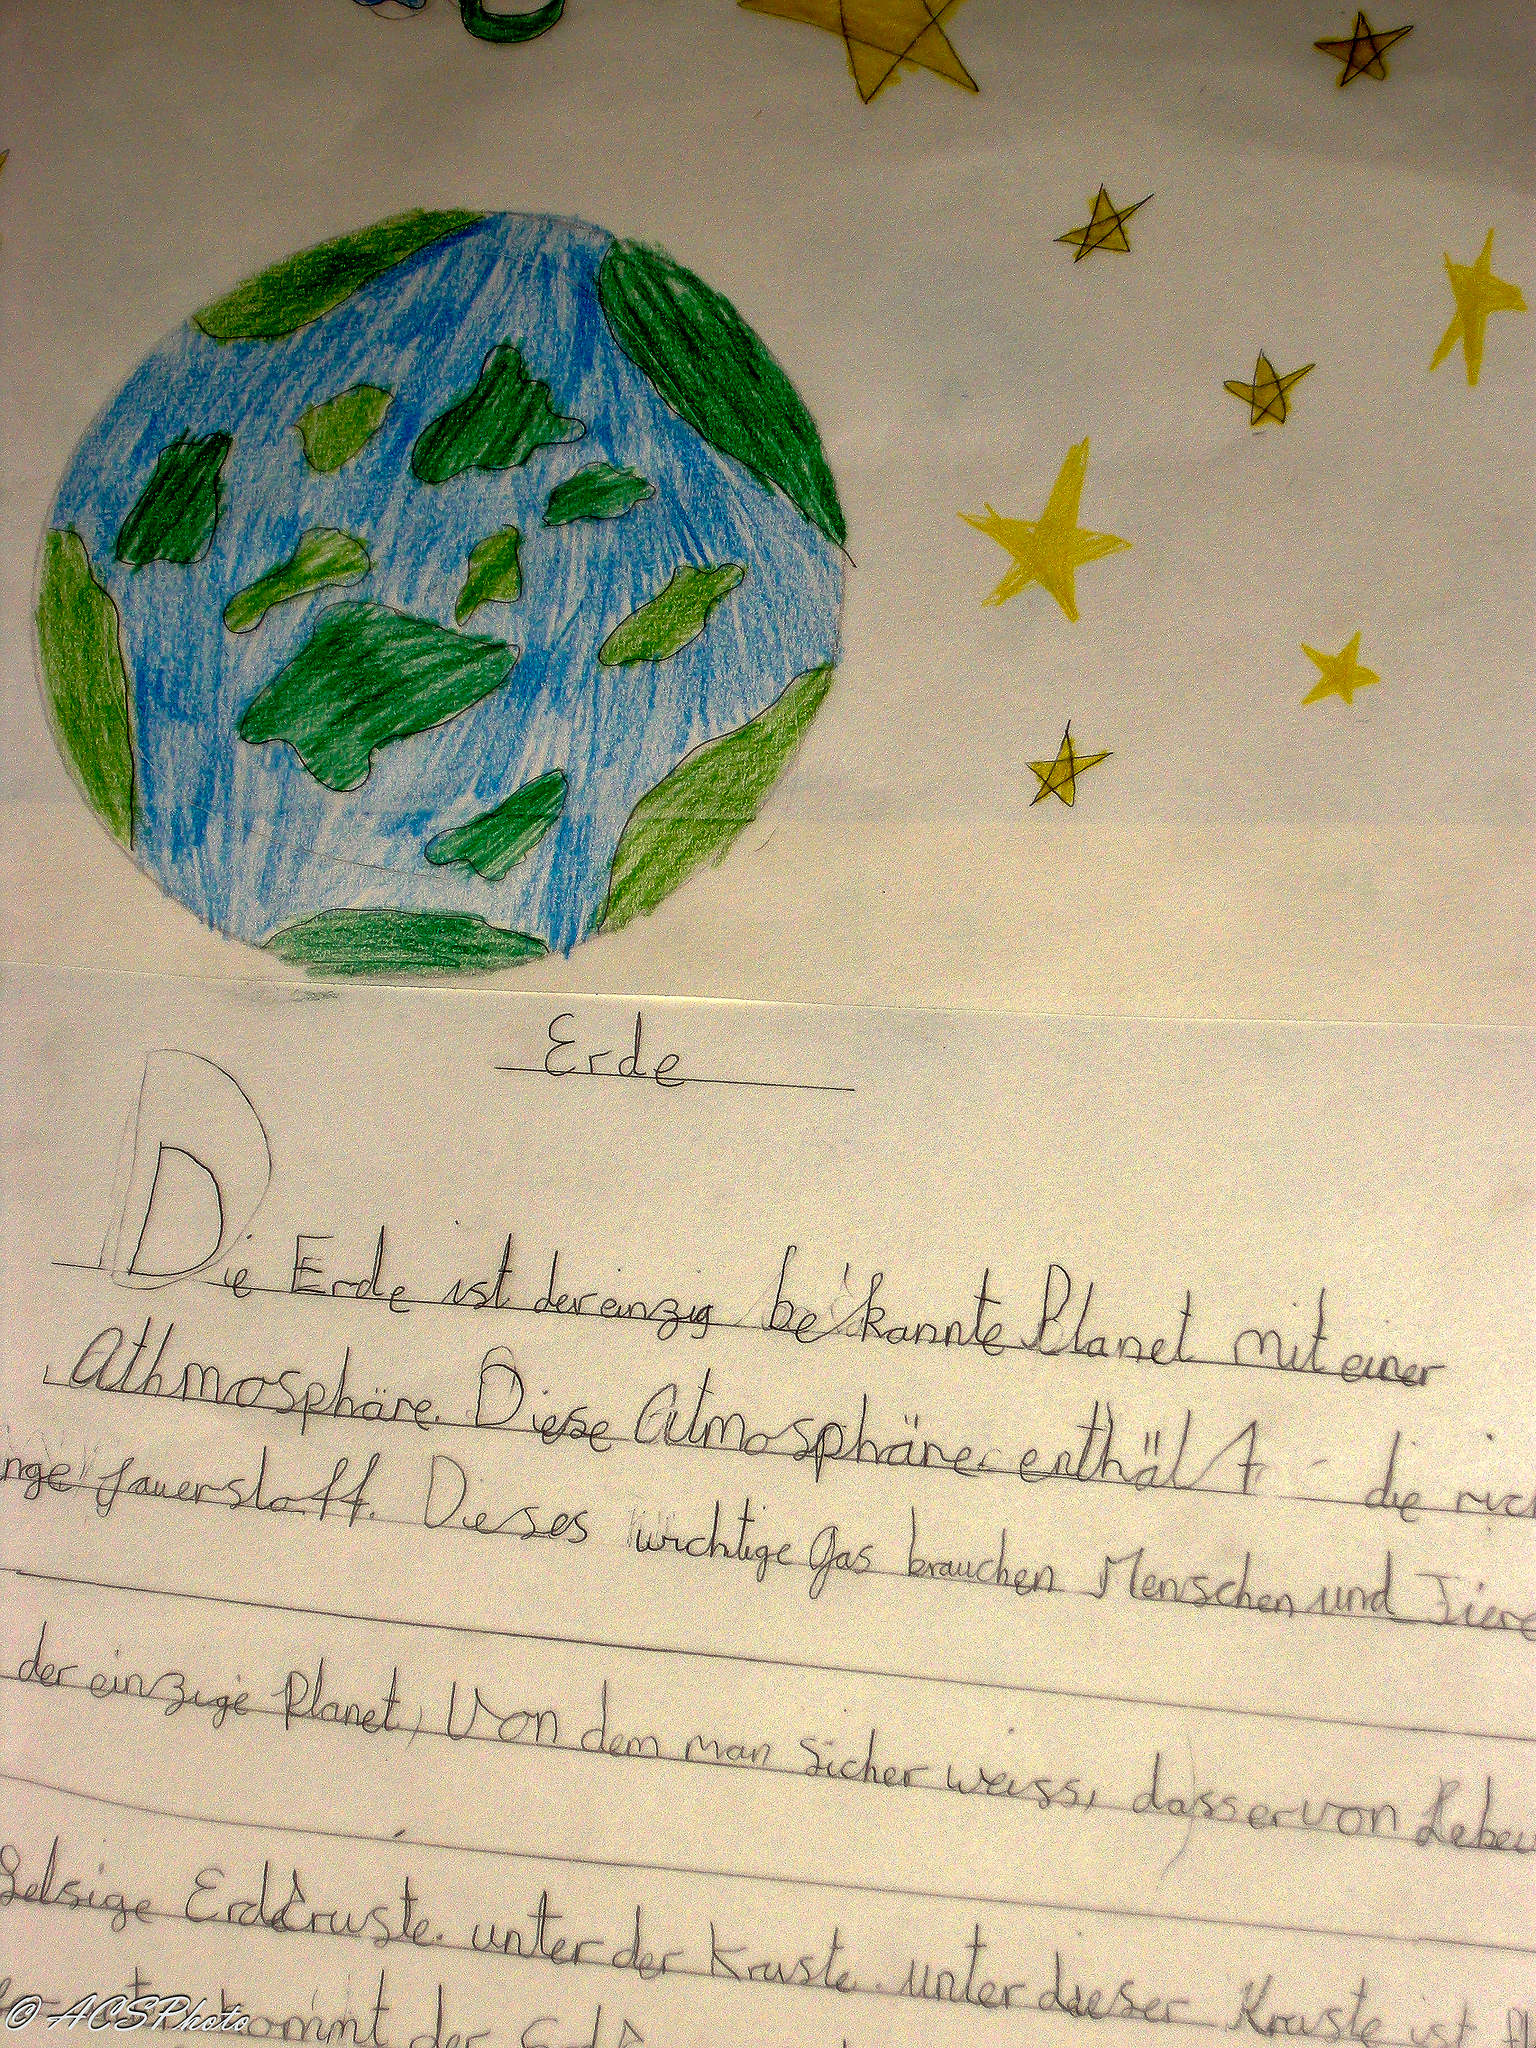 Erde
Die Erde ist der einzig bekannte Planet mit einer
Athmosphäre. Diese Atmosphäre enthält die
Sauerstoff. Dieses wichtige Gas brauchen Menschen und Tiere
der einzige Planet, Von dem man sicher weiss, dass er von
felsige Erdkruste. unter der Kruste. unter dieser Kruste ist
kommt der
© ACSPhoto